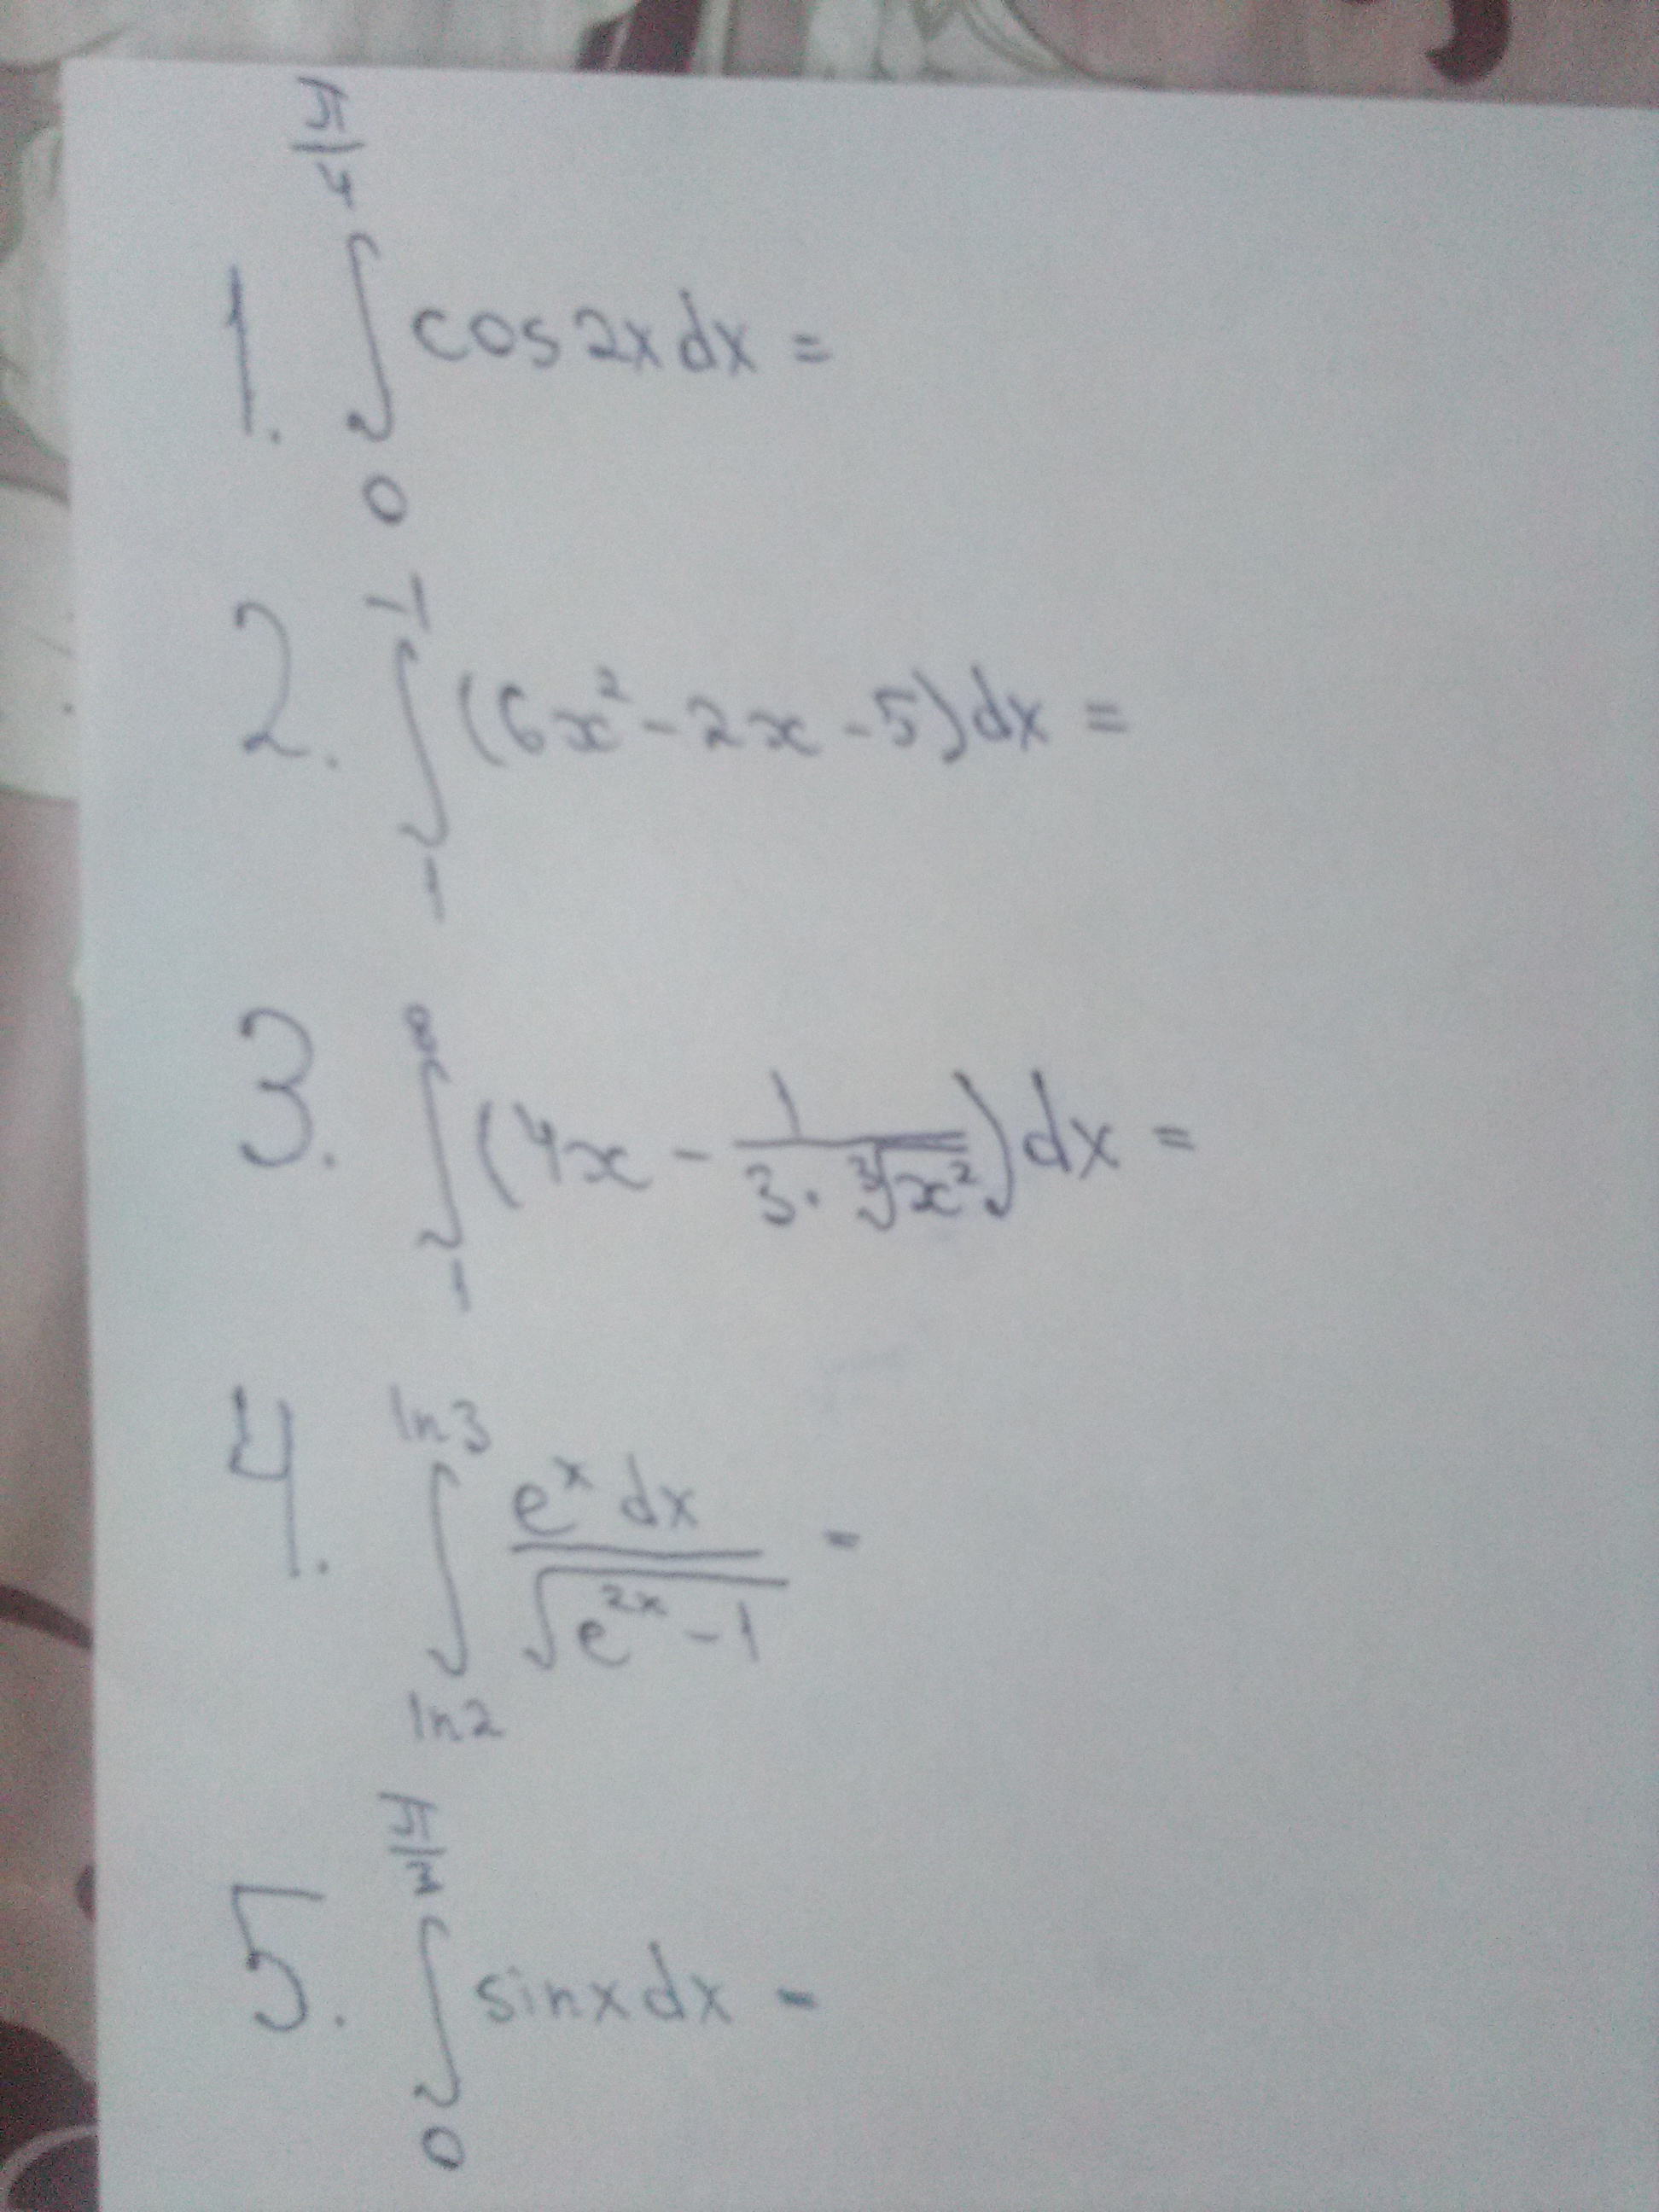 1. ∫₀^(π/4) cos2x dx =
2. ∫ (6x² - 2x - 5)dx =
3. ∫₁^8 (4x - 1/(3·∛x²))dx =
4. ∫_(ln2)^(ln3) e^x dx / √(e^(2x) - 1) =
5. ∫₀ sinx dx =